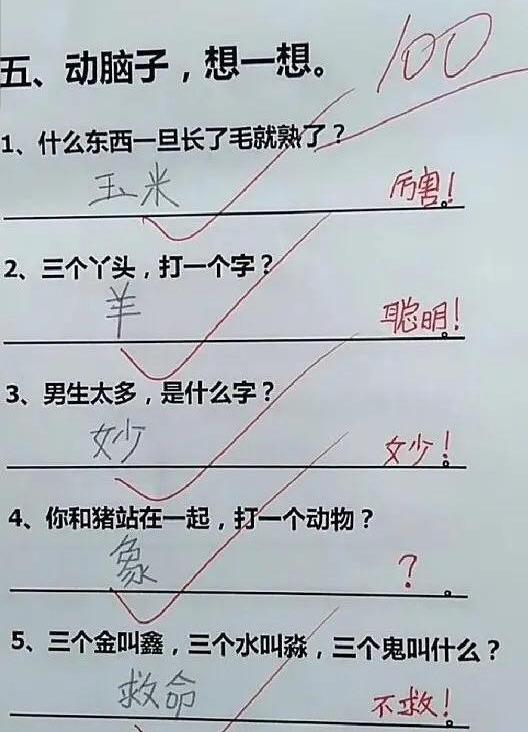 100
五、动脑子，想一想。
1、什么东西一旦长了毛就熟了？
玉米 厉害！。
2、三个丫头，打一个字？
羊 聪明！。
3、男生太多，是什么字？
妙 妙！。
4、你和猪站在一起，打一个动物？
象 ？。
5、三个金叫鑫，三个水叫淼，三个鬼叫什么？
救命 不救！。